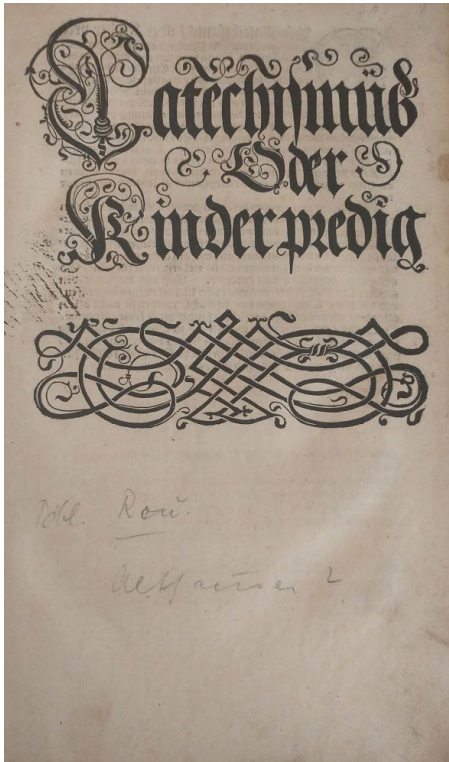 Catechismus
Oder
Kinderpredig
Bibl. Rou.